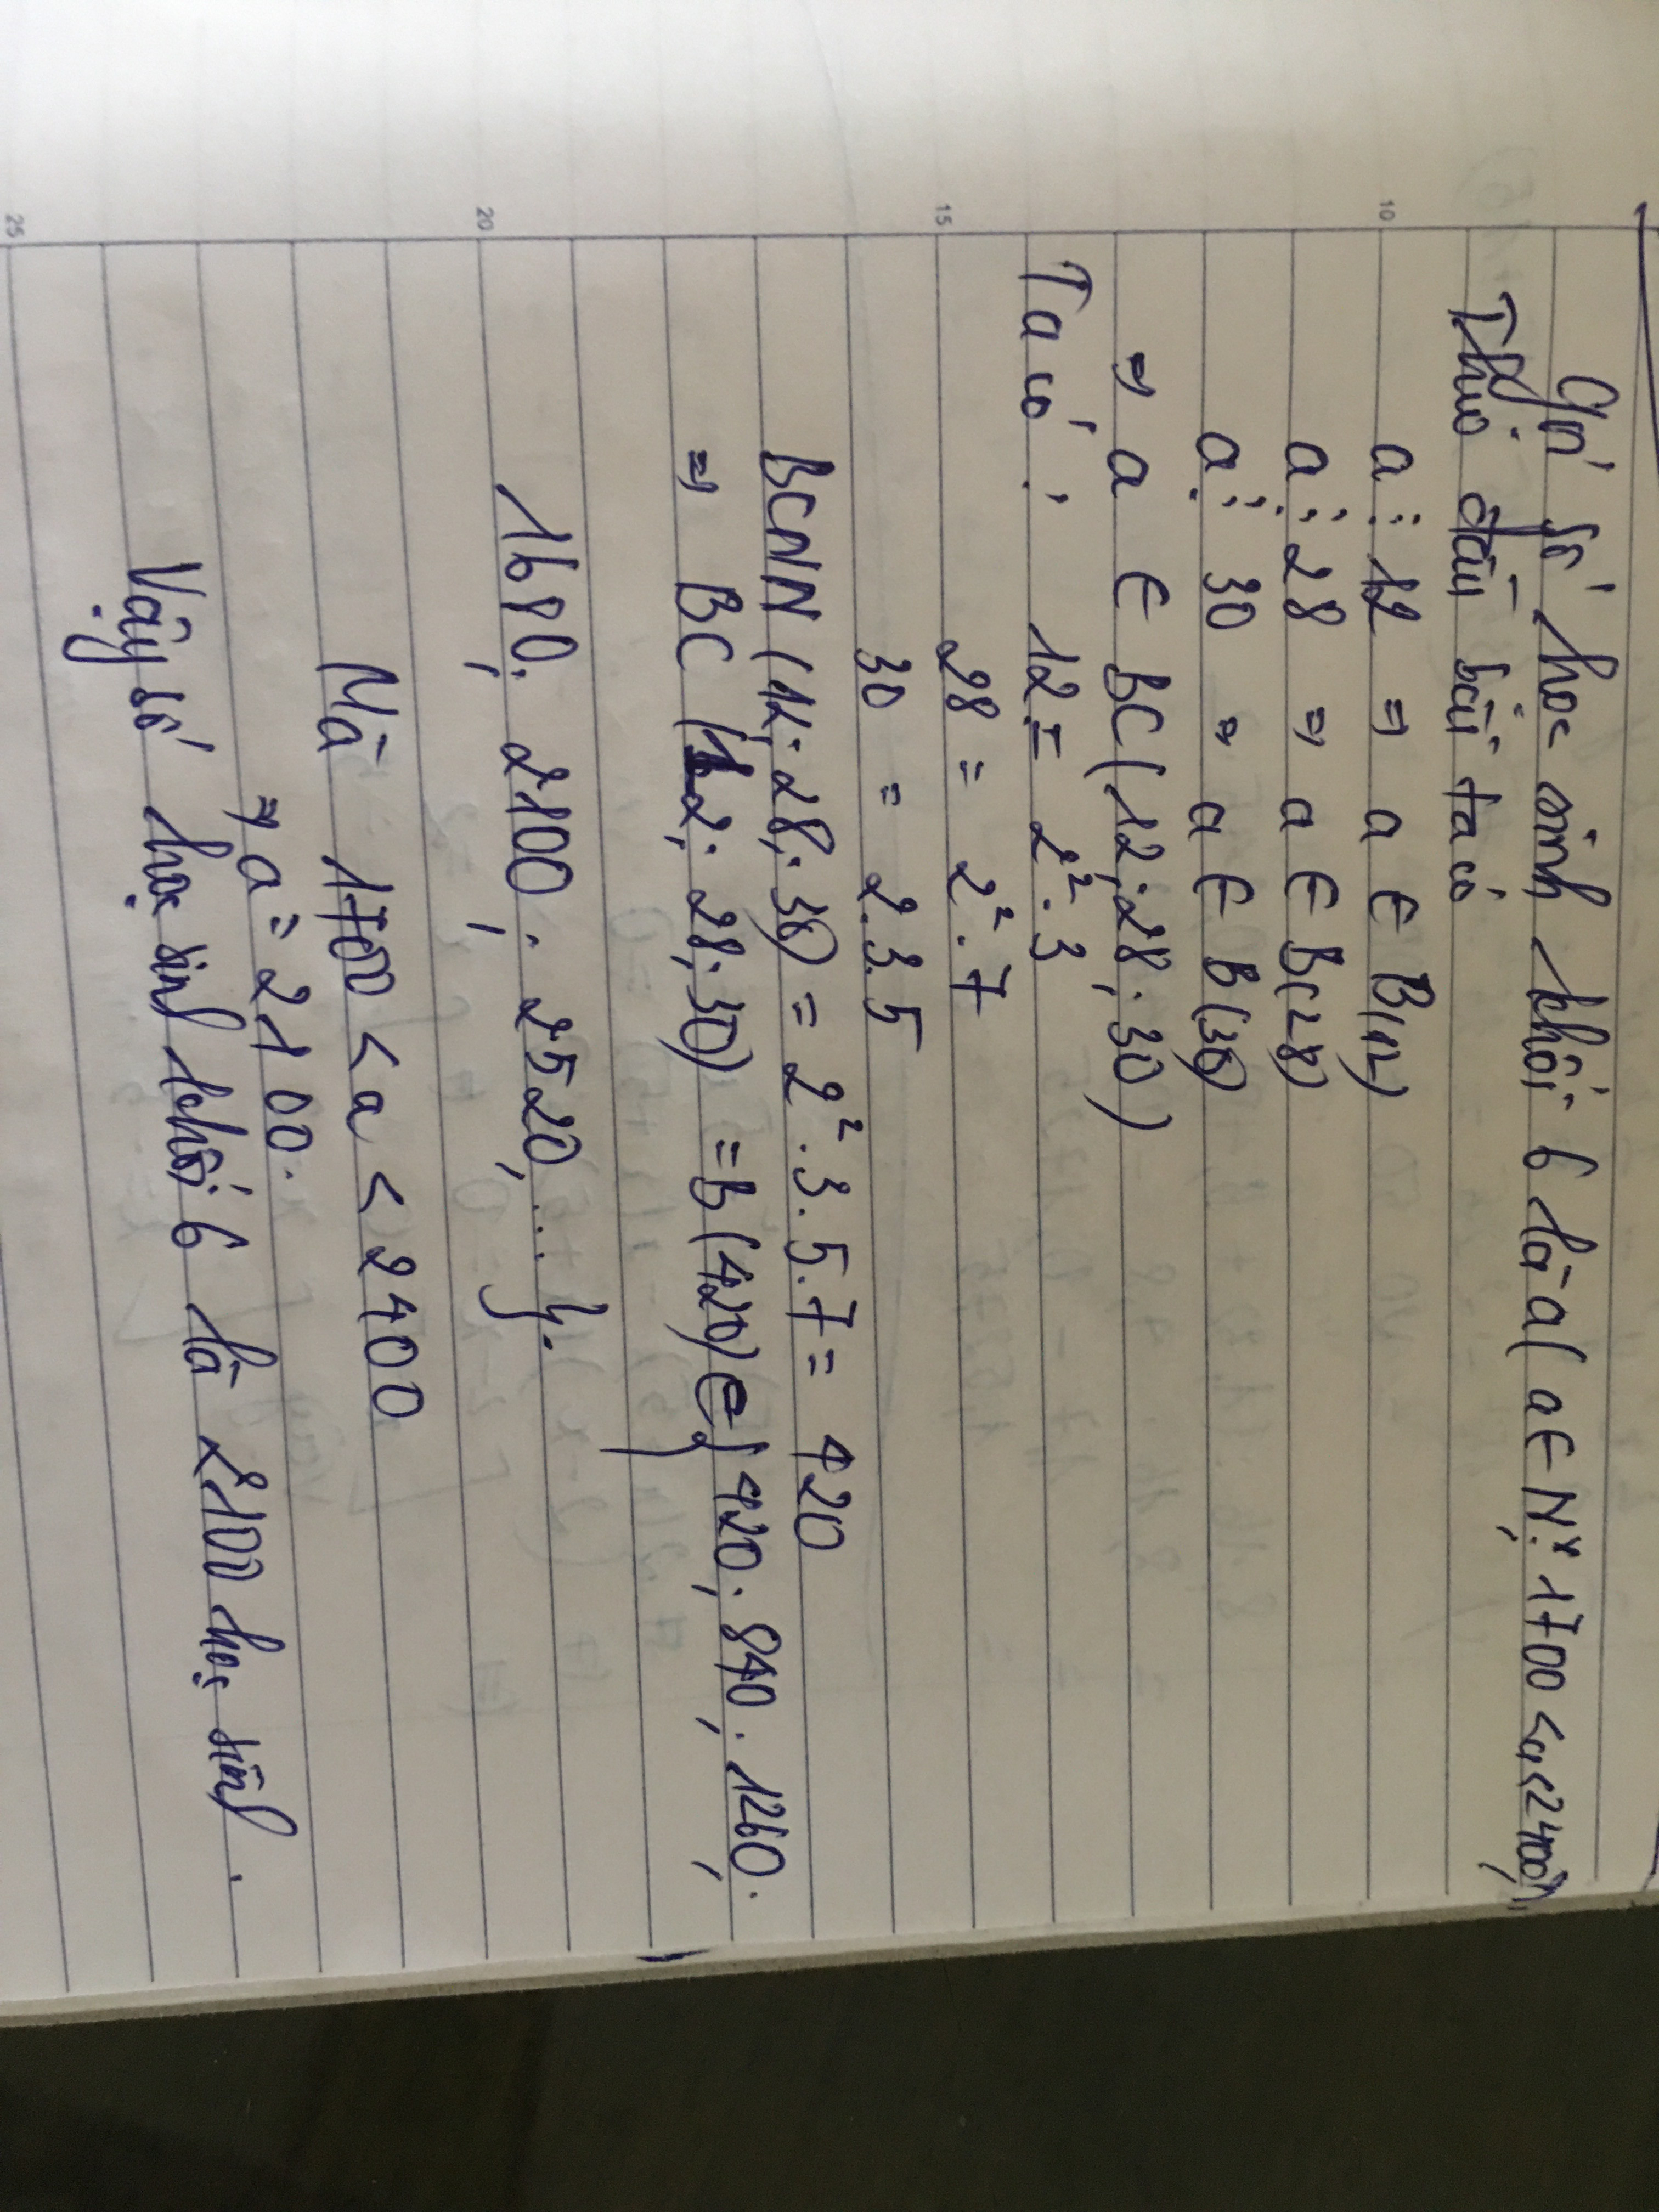 Gọi số học sinh khối 6 là a (a ∈ N*; 1700 < a < 2400),
Theo đầu bài ta có
a ⋮ 12 ⇒ a ∈ B(12)
a ⋮ 28 ⇒ a ∈ B(28)
a ⋮ 30 ⇒ a ∈ B(30)
⇒ a ∈ BC(12; 28; 30)
Ta có: 12 = 2².3
28 = 2².7
30 = 2.3.5
BCNN(12; 28; 30) = 2².3.5.7 = 420
⇒ BC(12; 28; 30) = B(420) ∈ {420; 840; 1260;
1680; 2100; 2520, ...}.
Mà 1700 < a < 2400
⇒ a = 2100.
Vậy số học sinh khối 6 là 2100 học sinh.
10
15
20
25